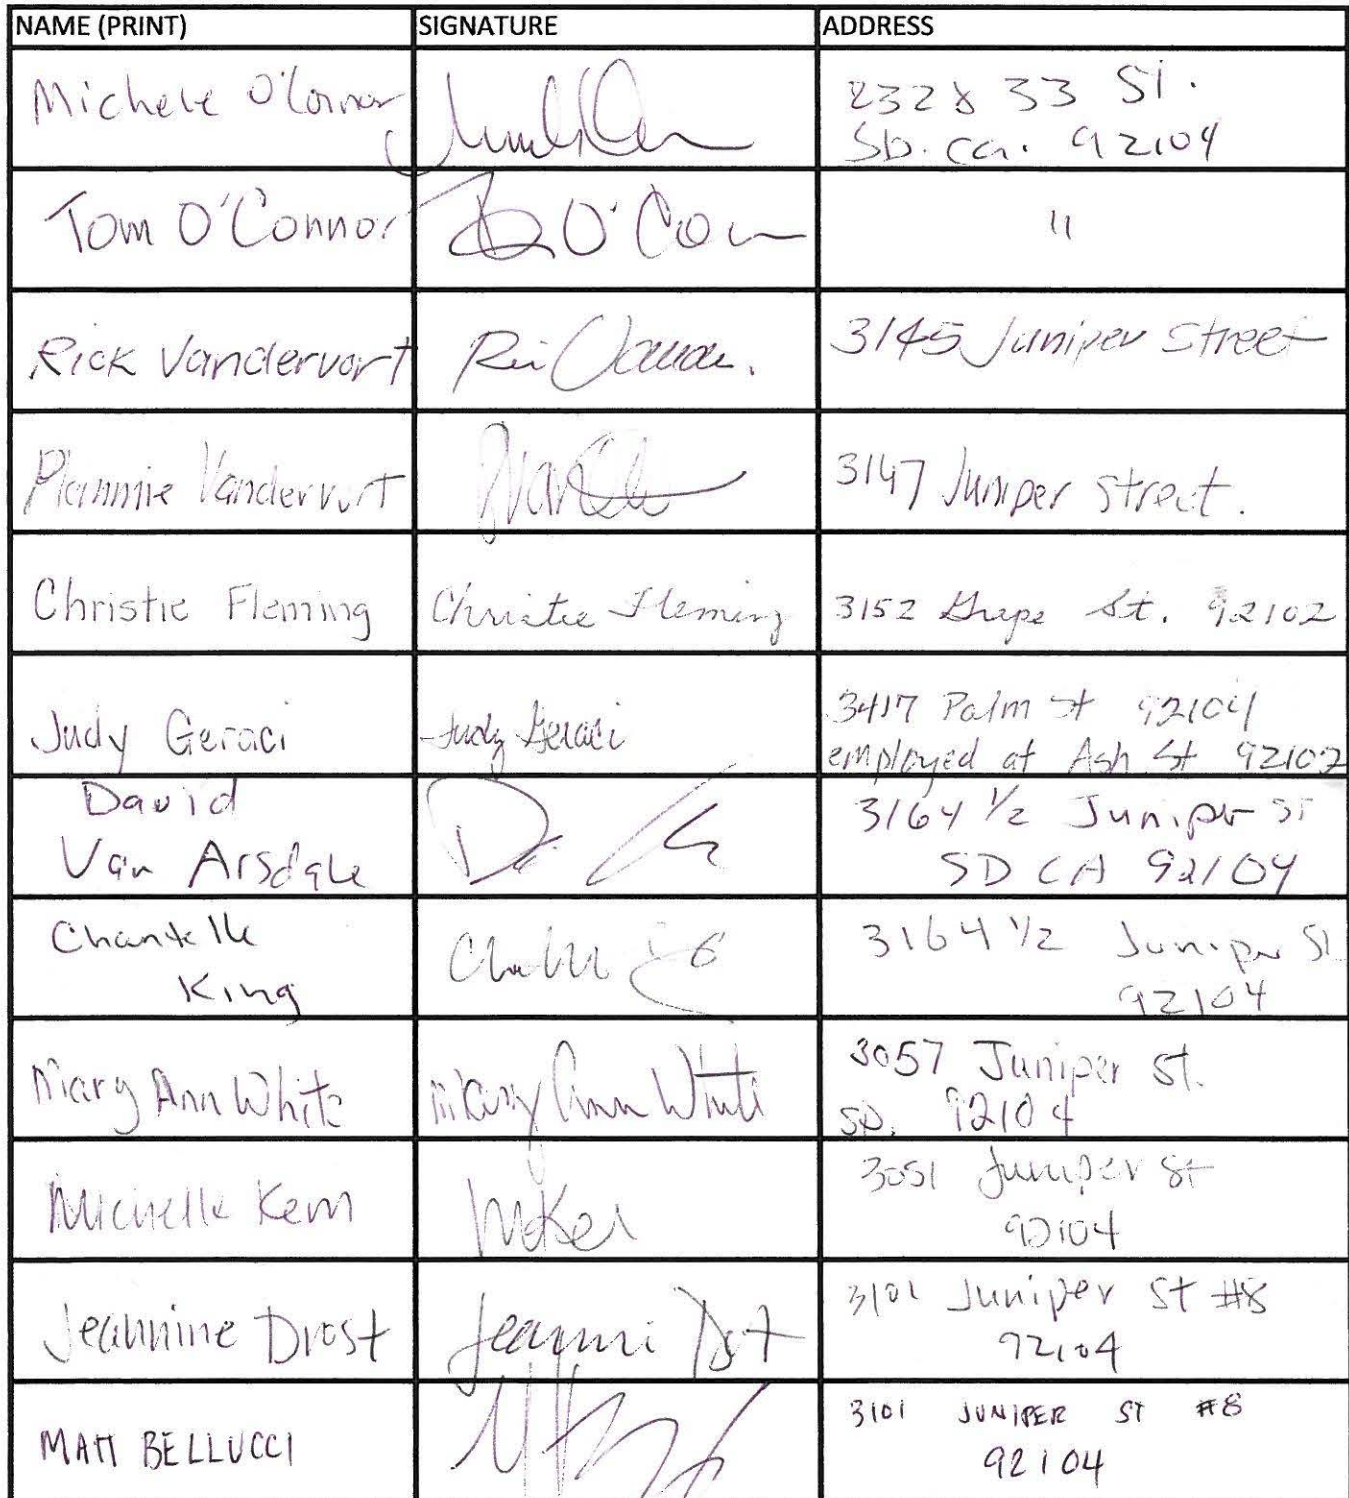 NAME (PRINT) SIGNATURE ADDRESS
Michele O'Connor 2328 33 St.
SD. Ca. 92104
Tom O'Connor O'Con 11
Rick Vandervort 3145 Juniper Street
Vandervort 3147 Juniper Street.
Christie Fleming Christie Fleming 3152 Grape St. 92102
Judy Geraci Judy Geraci 3417 Palm St 92104
employed at Ash St 92102
David 3164 1/2 Juniper St
Van Arsdale SD CA 92104
Chantelle 3164 1/2 Juniper St
King 92104
Mary Ann White Mary Ann White 3057 Juniper St.
SD. 92104
Michelle Kern MKer 3051 Juniper St
92104
Jeannine Drost 3101 Juniper St #8
92104
MATT BELLUCCI 3101 JUNIPER ST #8
92104